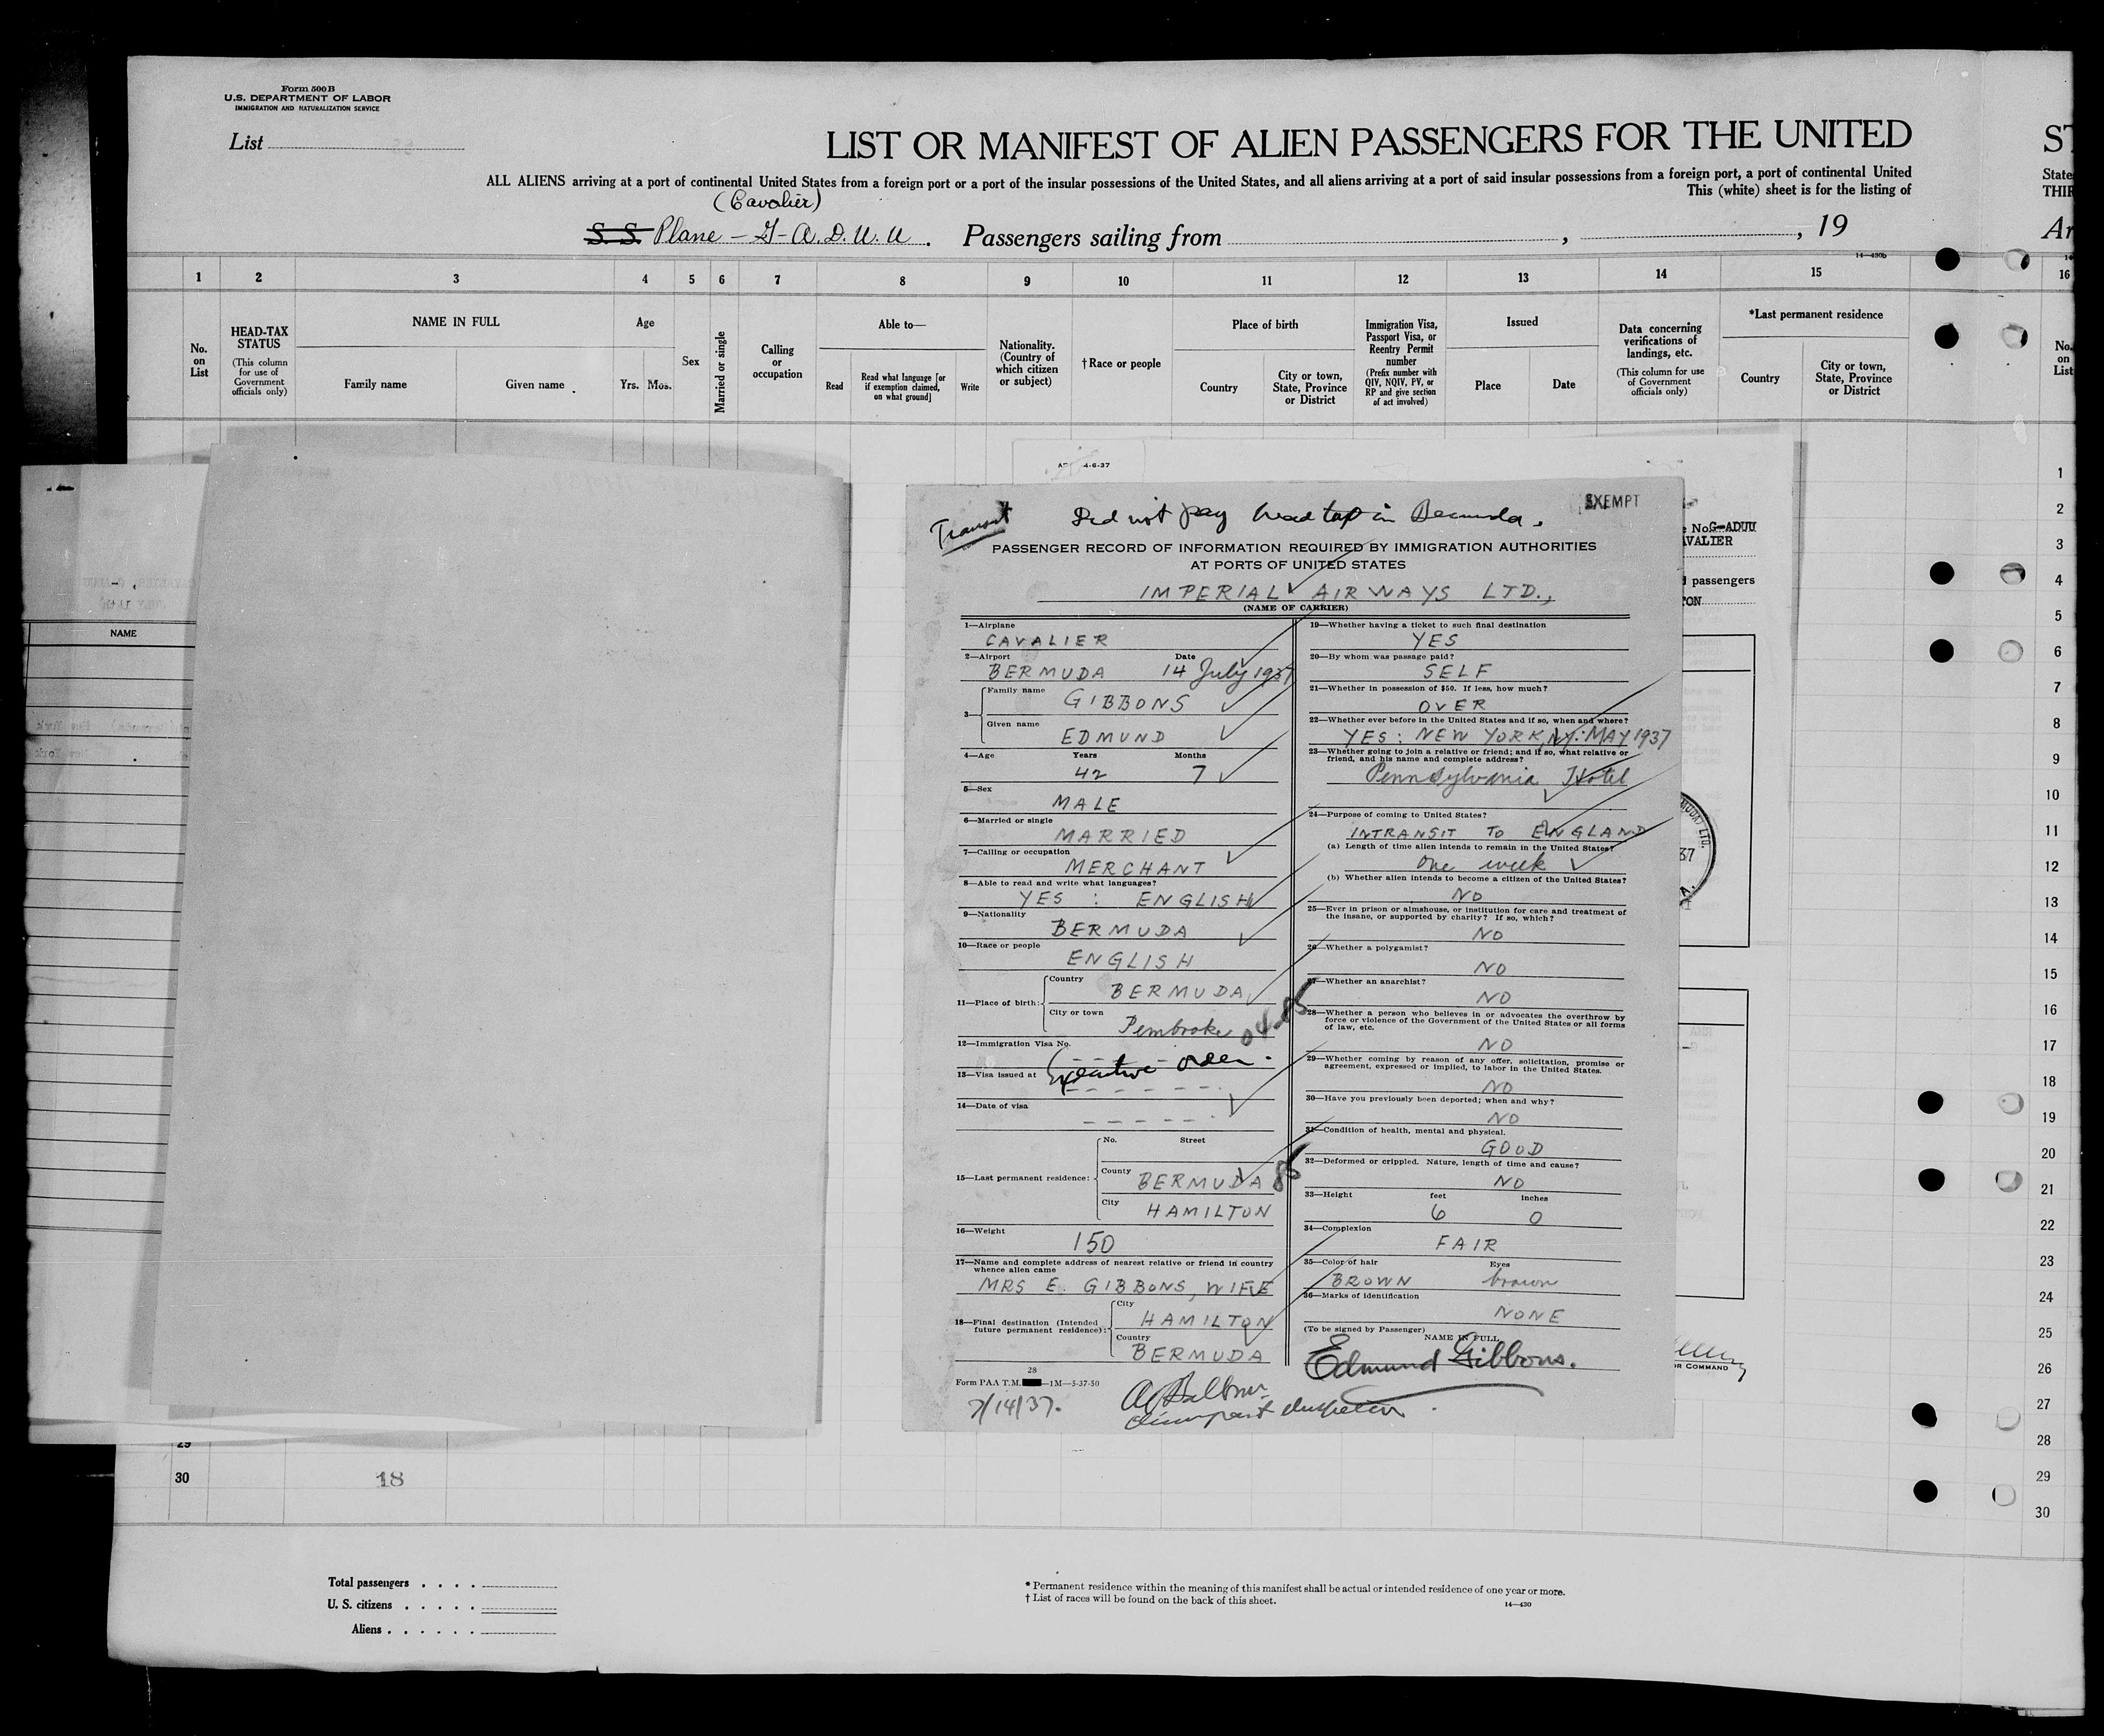 Form 500 B
U.S. DEPARTMENT OF LABOR
IMMIGRATION AND NATURALIZATION SERVICE
List
LIST OR MANIFEST OF ALIEN PASSENGERS FOR THE UNITED
ST
ALL ALIENS arriving at a port of continental United States from a foreign port or a port of the insular possessions of the United States, and all aliens arriving at a port of said insular possessions from a foreign port, a port of continental United
State
This (white) sheet is for the listing of
THIR
(Cavalier)
S. S. Plane - G-A.D.U.U. Passengers sailing from , , 19
Ar
14—430b
1 2 3 4 5 6 7 8 9 10 11 12 13 14 15 16
No. on List
HEAD-TAX STATUS
(This column for use of Government officials only)
NAME IN FULL
Family name Given name
Age
Yrs. Mos.
Sex
Married or single
Calling or occupation
Able to—
Read
Read what language [or if exemption claimed, on what ground]
Write
Nationality. (Country of which citizen or subject)
† Race or people
Place of birth
Country
City or town, State, Province or District
Immigration Visa, Passport Visa, or Reentry Permit number
(Prefix number with QIV, NQIV, PV, or RP and give section of act involved)
Issued
Place Date
Data concerning verifications of landings, etc.
(This column for use of Government officials only)
*Last permanent residence
Country
City or town, State, Province or District
No. on List
4-6-37
NAME
No. G-ADUU
VALIER
passengers
TON
37
OR COMMAND
Transit
Did not pay head tax in Bermuda.
EXEMPT
PASSENGER RECORD OF INFORMATION REQUIRED BY IMMIGRATION AUTHORITIES
AT PORTS OF UNITED STATES
IMPERIAL AIRWAYS LTD.,
(NAME OF CARRIER)
1—Airplane
CAVALIER
2—Airport Date
BERMUDA 14 July 1937
3— Family name
GIBBONS
Given name
EDMUND
4—Age Years Months
42 7
5—Sex
MALE
6—Married or single
MARRIED
7—Calling or occupation
MERCHANT
8—Able to read and write what languages?
YES : ENGLISH
9—Nationality
BERMUDA
10—Race or people
ENGLISH
11—Place of birth: Country
BERMUDA
City or town
Pembroke
12—Immigration Visa No.
Executive order.
13—Visa issued at
14—Date of visa
15—Last permanent residence: No. Street
County
BERMUDA
City
HAMILTON
16—Weight
150
17—Name and complete address of nearest relative or friend in country
whence alien came
MRS E. GIBBONS, WIFE
18—Final destination (Intended
future permanent residence): City
HAMILTON
Country
BERMUDA
28
Form PAA T.M. —1M—5-37-50
7/14/37.
19—Whether having a ticket to such final destination
YES
20—By whom was passage paid?
SELF
21—Whether in possession of $50. If less, how much?
OVER
22—Whether ever before in the United States and if so, when and where?
YES: NEW YORK, NY: MAY 1937
23—Whether going to join a relative or friend; and if so, what relative or
friend, and his name and complete address?
Pennsylvania Hotel
24—Purpose of coming to United States?
INTRANSIT TO ENGLAND
(a) Length of time alien intends to remain in the United States?
One week
(b) Whether alien intends to become a citizen of the United States?
NO
25—Ever in prison or almshouse, or institution for care and treatment of
the insane, or supported by charity? If so, which?
NO
26—Whether a polygamist?
NO
27—Whether an anarchist?
NO
28—Whether a person who believes in or advocates the overthrow by
force or violence of the Government of the United States or all forms
of law, etc.
NO
29—Whether coming by reason of any offer, solicitation, promise or
agreement, expressed or implied, to labor in the United States.
NO
30—Have you previously been deported; when and why?
NO
31—Condition of health, mental and physical.
GOOD
32—Deformed or crippled. Nature, length of time and cause?
NO
33—Height feet inches
6 0
34—Complexion
FAIR
35—Color of hair Eyes
BROWN brown
36—Marks of identification
NONE
(To be signed by Passenger)
NAME IN FULL
Edmund Gibbons.
1
2
3
4
5
6
7
8
9
10
11
12
13
14
15
16
17
18
19
20
21
22
23
24
25
26
27
28
29
30
29
30 18
Total passengers
U. S. citizens
Aliens
* Permanent residence within the meaning of this manifest shall be actual or intended residence of one year or more.
† List of races will be found on the back of this sheet.
14—430